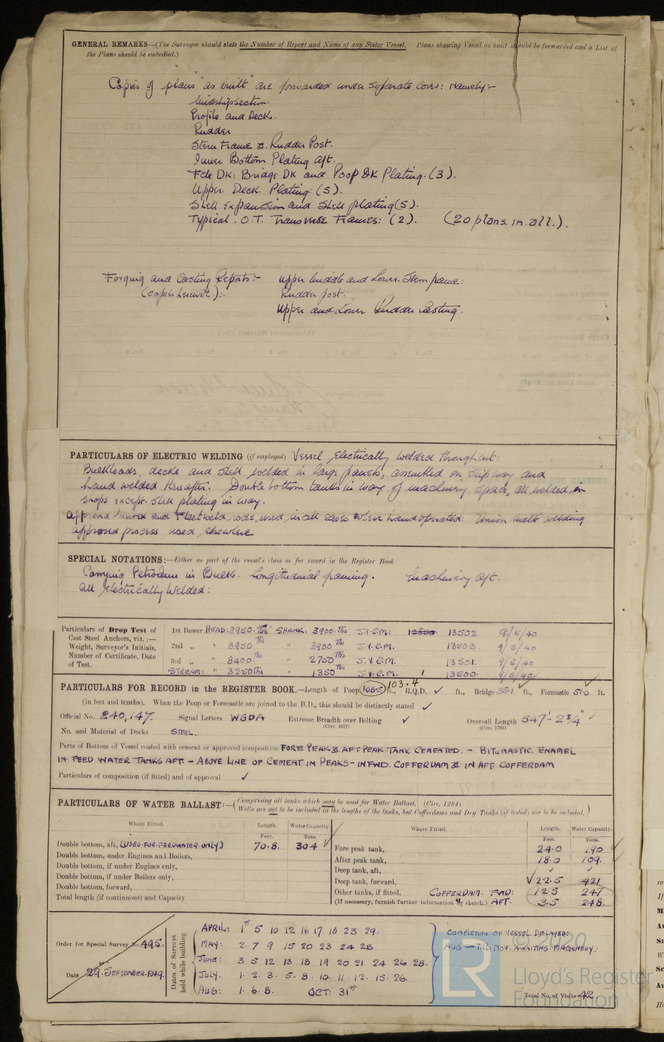 GENERAL REMARKS—(The Surveyor should state the Number of Report and Name of any Sister Vessel. Plans showing Vessel as built should be forwarded and a List of
the Plans should be embodied.)
Copies of plans "as built" are forwarded under separate cover: Namely:-
Midship section.
Profile and Deck.
Rudder
Stern Frame & Rudder Post.
Inner Bottom Plating aft.
Fcle Dk: Bridge Dk and Poop Dk Plating. (3).
Upper. Deck. Plating: (5).
Shell Expansion and Shell plating (5).
Typical. O.T. Transverse Frames: (2). (20 plans. in all.).
Forging and Casting Reports:- Upper middle and Lower. Stern frame:
Rudder post.
Upper and Lower Rudder Casting.
PARTICULARS OF ELECTRIC WELDING (if employed) Vessel Electrically welded throughout:
Bulkheads, decks and shell welded in large panels, assembled on slipway and
hand welded. Double bottom tanks in way of machinery space, all welded in
shops except shell plating in way.
and Fleetweld rods, used in all where hand operated: Union melt welding
approved process used elsewhere
SPECIAL NOTATIONS:—Either as part of the vessel's class or for record in the Register Book
Carrying Petroleum in Bulk. Longitudinal framing. Machinery aft.
All Electrically Welded:
Particulars of Drop Test of
Cast Steel Anchors, viz.:—
Weight, Surveyor's Initials,
Number of Certificate, Date
of Test.
1st Bower HEAD: 8950 lbs SHANK. 3900 lbs J.V.E.M. 13502 9/5/40
2nd „ 8900 " 3900 lbs J.V.E.M. 13503. 9/5/40
3rd „ 8400 " 2750 lbs J.V.E.M. 13501. 9/5/40
STREAM: 3250 lbs " 1350 lbs J.V.E.M. 13500. 9/5/40
PARTICULARS FOR RECORD in the REGISTER BOOK.—Length of Poop 108.5 103.4 ft., R.Q.D. ✓ ft., Bridge 35.1 ft., Forecastle 51.0 ft.
(in feet and tenths). When the Poop or Forecastle are joined to the B.D., this should be distinctly stated ✓
Official No. 240,147. Signal Letters WGDA Extreme Breadth over Belting ✓ Over-all Length 547'-2¾"
No. and Material of Decks STEEL.
Parts of Bottom of Vessel coated with cement or approved composition FORE PEAK & AFT PEAK TANK CEMENTED. – BITUMASTIC ENAMEL
IN FEED WATER TANKS AFT – ABOVE LINE OF CEMENT IN PEAKS – IN FWD. COFFERDAM & IN AFT COFFERDAM
Particulars of composition (if fitted) and of approval ✓
PARTICULARS OF WATER BALLAST:—(Comprising all tanks which may be used for Water Ballast, (Circ. 1284)
Wells are not to be included in the lengths of the tanks, but Cofferdams and Dry Tanks (if tested) are to be included.)
Where Fitted. Length. Water Capacity. Where Fitted. Length. Water Capacity.
Feet. Tons. Feet. Tons.
Double bottom, aft, (USED FOR FEEDWATER ONLY) 70.8. 304 ✓
Double bottom, under Engines and Boilers,
Double bottom, if under Engines only,
Double bottom, if under Boilers only,
Double bottom, forward,
Total length (if continuous) and Capacity
Fore peak tank, 24.0 190
After peak tank, 18.0 109.
Deep tank, aft,
Deep tank, forward, 22.5 421
Other tanks, if fitted, COFFERDAM FWD: 12.5 247
(If necessary, furnish further information by sketch.) AFT. 3.5 248
Order for Special Survey No. 495.
Date 29. SEPTEMBER. 1939.
Dates of Surveys
held while building
APRIL: 1st 5 10 12 16 17 18 23 29.
MAY: 2. 7 9 15 20 23 24 28
JUNE: 3 5 12 13 18 19 20 21 24 26 28.
JULY. 1. 2. 3. 5. 8. 10. 11. 12. 15. 26.
AUG: 1. 6. 8. OCT: 31st
COMPLETION OF VESSEL DELAYED:
AUG – TILL NOV. AWAITING MACHINERY.
Total No. of Visits 42
LR
© 2020
Lloyd's Register
Foundation